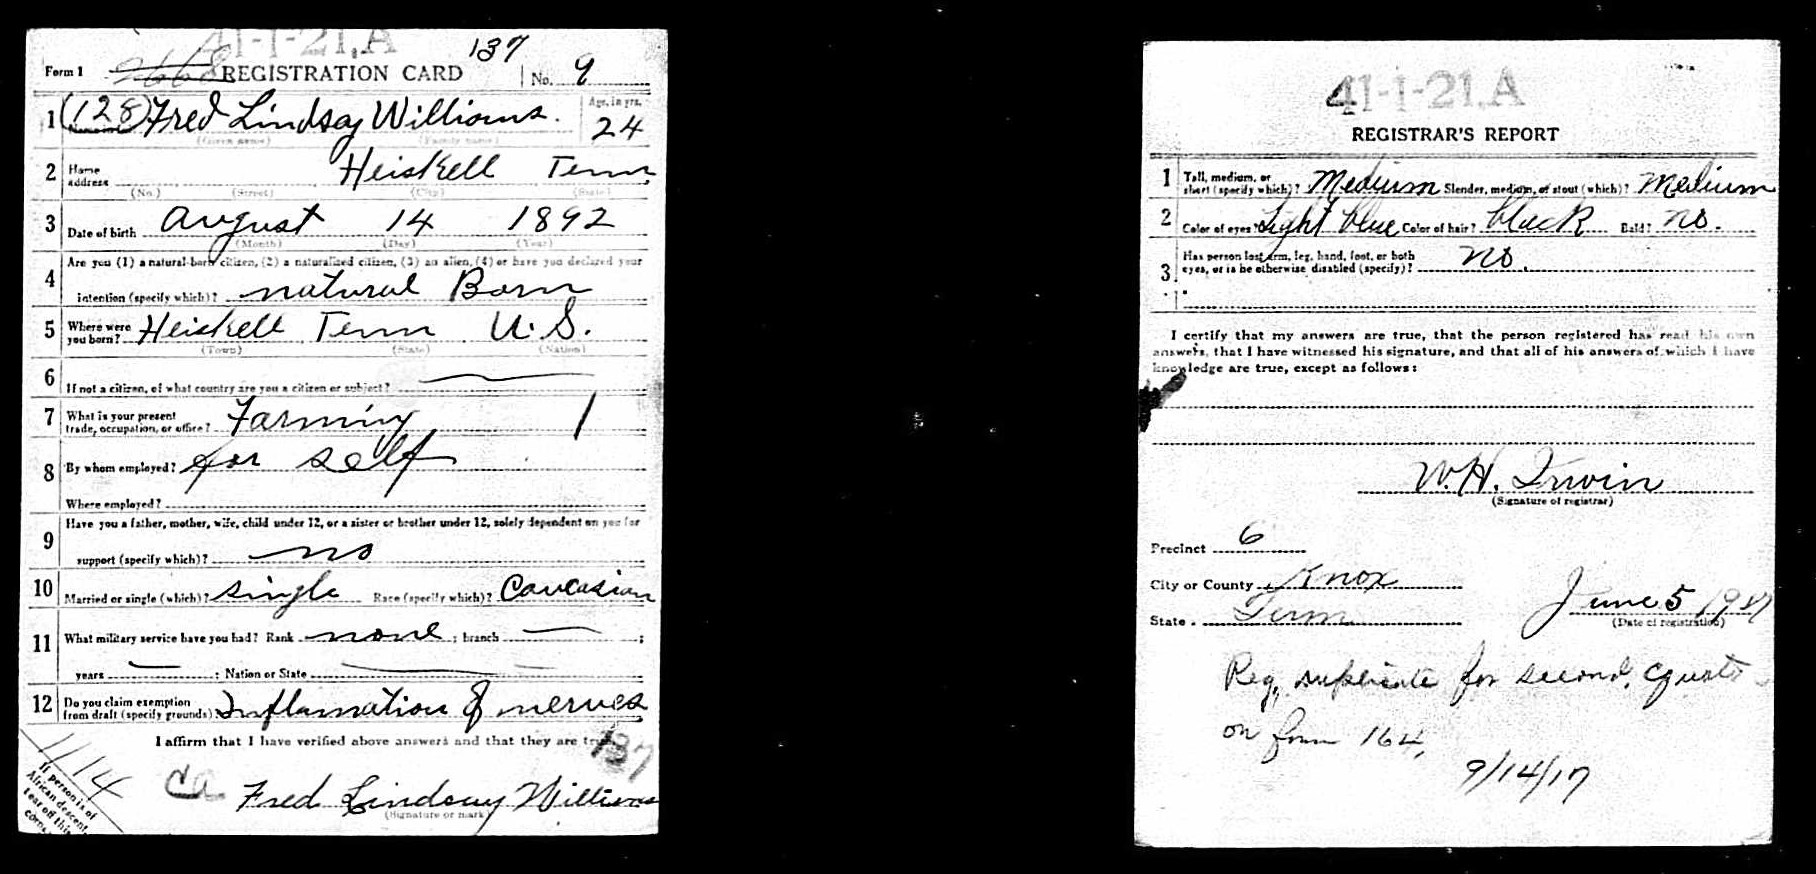 41-1-21.A
137
Form 1 2668 REGISTRATION CARD No. 9
1 (128) Fred Lindsay Williams. Age, in yrs. 24
(Given name) (Family name)
2 Home address Heiskell Tenn
(No.) (Street) (City) (State)
3 Date of birth August 14 1892
(Month) (Day) (Year)
4 Are you (1) a natural-born citizen, (2) a naturalized citizen, (3) an alien, (4) or have you declared your
intention (specify which)? natural Born
5 Where were you born? Heiskell Tenn U.S.
(Town) (State) (Nation)
6 If not a citizen, of what country are you a citizen or subject?
7 What is your present trade, occupation, or office? Farming 1
8 By whom employed? for self
Where employed?
9 Have you a father, mother, wife, child under 12, or a sister or brother under 12, solely dependent on you for
support (specify which)? no
10 Married or single (which)? single Race (specify which)? Caucasian
11 What military service have you had? Rank none ; branch ;
years ; Nation or State
12 Do you claim exemption from draft (specify grounds)? Inflamation of nerves
I affirm that I have verified above answers and that they are true.
137
1/14
Ca Fred Lindsay Williams
(Signature or mark)
If person is of
African descent,
tear off this
corner.
41-1-21.A
REGISTRAR'S REPORT
1 Tall, medium, or short (specify which)? Medium Slender, medium, or stout (which)? Medium
2 Color of eyes? Light blue Color of hair? black Bald? no.
3 Has person lost arm, leg, hand, foot, or both eyes, or is he otherwise disabled (specify)? no.
I certify that my answers are true, that the person registered has read his own
answers, that I have witnessed his signature, and that all of his answers of which I have
knowledge are true, except as follows:
W.H. Irwin
(Signature of registrar)
Precinct 6
City or County Knox
State Tenn June 5 1917
(Date of registration)
Reg. duplicate for second quota
on form 164,
9/14/17